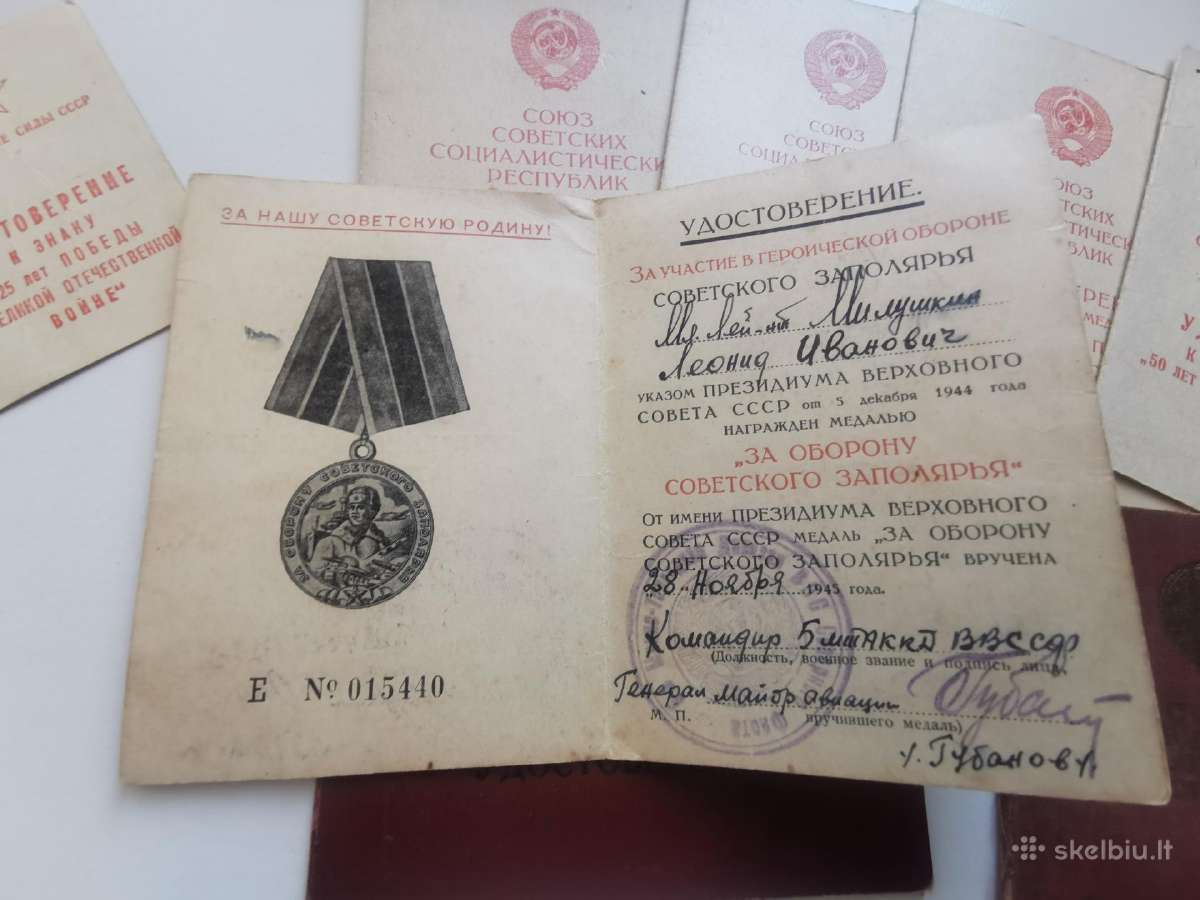 Е СИЛЫ СССР
ТОВЕРЕНИЕ
К ЗНАКУ
25 лет ПОБЕДЫ
ЕЛИКОЙ ОТЕЧЕСТВЕННОЙ
ВОЙНЕ"
СОЮЗ
СОВЕТСКИХ
СОЦИАЛИСТИЧЕСКИ
РЕСПУБЛИК
СОЮЗ
СОВЕТС
СОЦИА
ОЮЗ
ТСКИХ
ТИЧЕСКИ
БЛИК
ЕРЕ
МЕДА
У
К
"50 ЛЕТ
ЗА НАШУ СОВЕТСКУЮ РОДИНУ!
ЗА ОБОРОНУ СОВЕТСКОГО ЗАПОЛЯРЬЯ
Е № 015440
УДОСТОВЕРЕНИЕ.
ЗА УЧАСТИЕ В ГЕРОИЧЕСКОЙ ОБОРОНЕ
СОВЕТСКОГО ЗАПОЛЯРЬЯ
Мл. Лей-нт Милушкин
Леонид Иванович
УКАЗОМ ПРЕЗИДИУМА ВЕРХОВНОГО
СОВЕТА СССР от 5 декабря 1944 года
НАГРАЖДЕН МЕДАЛЬЮ
„ЗА ОБОРОНУ
СОВЕТСКОГО ЗАПОЛЯРЬЯ"
ОТ ИМЕНИ ПРЕЗИДИУМА ВЕРХОВНОГО
СОВЕТА СССР МЕДАЛЬ „ЗА ОБОРОНУ
СОВЕТСКОГО ЗАПОЛЯРЬЯ" ВРУЧЕНА
28 Ноября 1945 года.
Командир 5 мтАККД ВВС СФ
(Должность, военное звание и подпись лица,
Генерал майор авиации
М. П. вручившего медаль)
/. Губанов /.
УДОСТОВ
skelbiu.lt